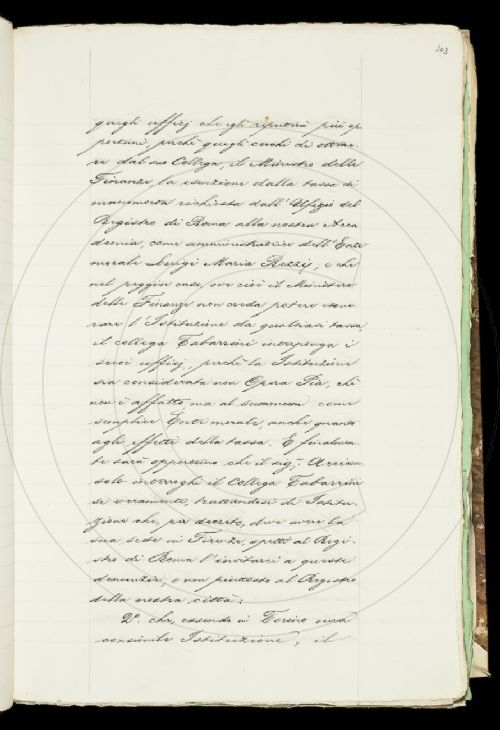 303
quegli uffici che egli reputerà più op
portuni, perchè quegli cerchi di ottene
re dal suo Collega, il Ministro delle
Finanze, la esenzione dalla tassa di
manomorta richiesta dall'Ufizio del
Registro di Roma alla nostra Acca
demia, come amministratrice dell'Ente
morale Luigi Maria Rezzi; e che
nel peggior caso, ove cioè il Ministero
delle Finanze non creda potere eso
rare l'Istituzione da qualsiasi tassa
il collega Tabarrini interponga i
suoi ufficj, perchè la Istituzione
sia considerata non Opera Pia, chè
non è affatto ma al summum come
semplice Ente morale, anche quanto
agli effetti della tassa. E finalmen
te sarà opportuno che il sig.
solo interroghi il Collega Tabarrini
se veramente, trattandosi di Istitu
zione che, per decreto, deve avere la
sua sede in Firenze, spetti al Regi
stro di Roma l'invitarci a queste
denunzie, e non piuttosto al Registro
della nostra città;
2.° che, essendo in Torino una
consimile Istituzione, il